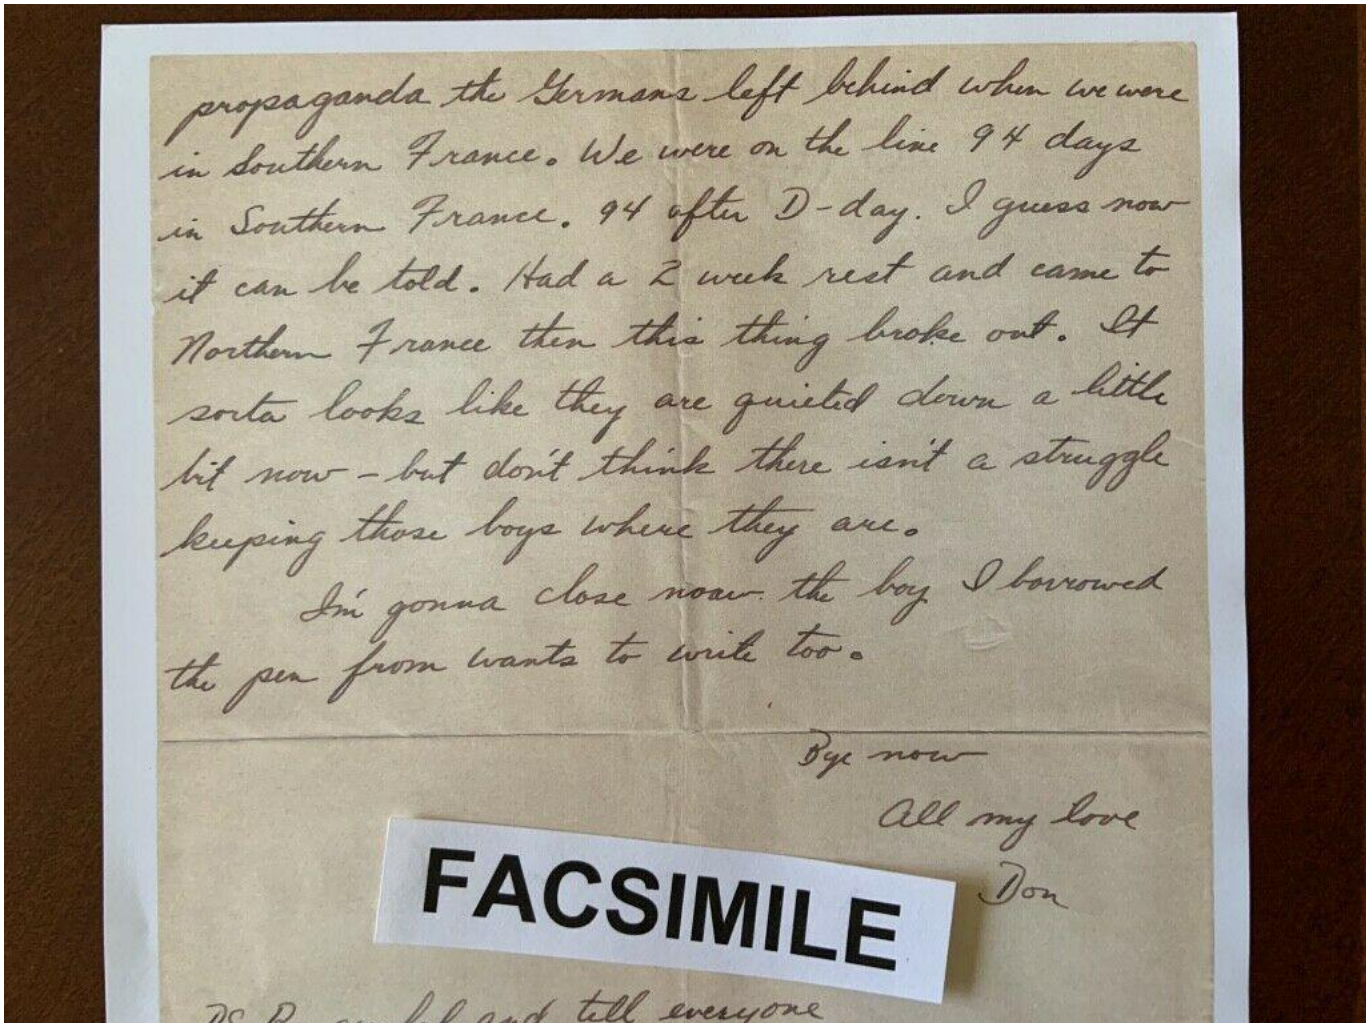 propaganda the Germans left behind when we were
in Southern France. We were on the line 94 days
in Southern France. 94 after D-day. I guess now
it can be told. Had a 2 week rest and came to
Northern France then this thing broke out. It
sorta looks like they are quieted down a little
bit now - but don't think there isn't a struggle
keeping those boys where they are.
I'm gonna close now. the boy I borrowed
the pen from wants to write too.
Bye now
All my love
Don
FACSIMILE
PS and tell everyone